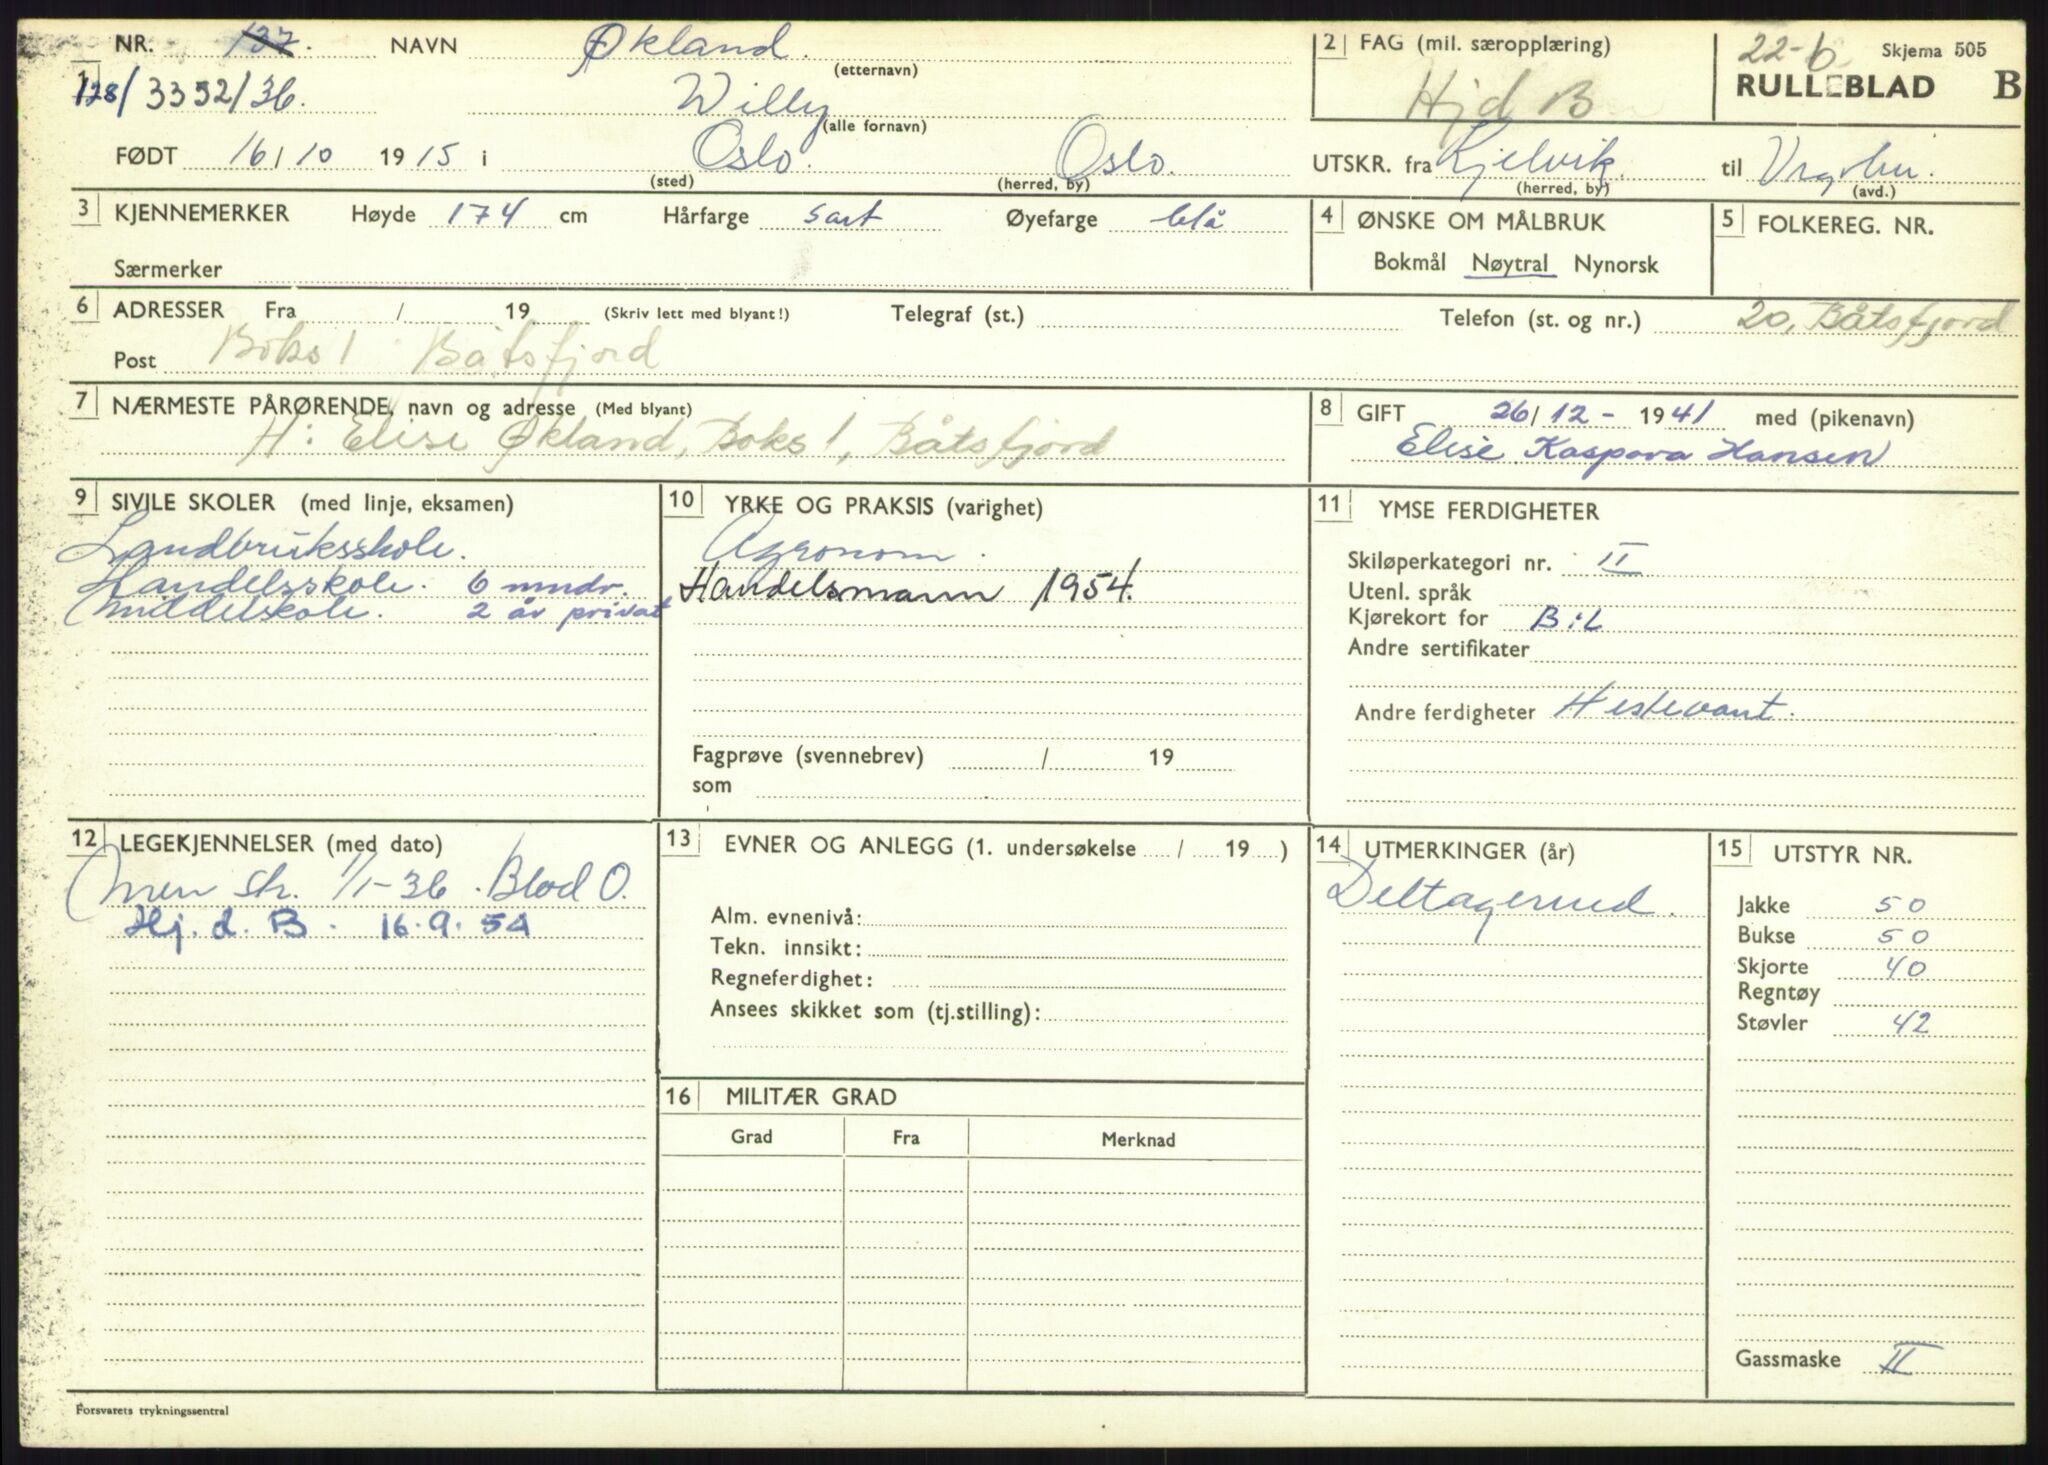 NR. 137. NAVN Økland. (etternavn)
1 128/3352/36. Willy (alle fornavn)
FØDT 16/10 1915 i Oslo. (sted) Oslo. (herred, by)
2 FAG (mil. særopplæring)
Hjd B
22-6 Skjema 505
RULLEBLAD B
UTSKR. fra Kjelvik. (herred, by) til (avd.)
3 KJENNEMERKER Høyde 174 cm Hårfarge sart Øyefarge blå
Særmerker
4 ØNSKE OM MÅLBRUK
Bokmål Nøytral Nynorsk
5 FOLKEREG. NR.
6 ADRESSER Fra / 19 (Skriv lett med blyant!) Telegraf (st.) Telefon (st. og nr.) 20, Båtsfjord
Post Boks 1 Båtsfjord
7 NÆRMESTE PÅRØRENDE, navn og adresse (Med blyant)
H: Elise Økland, Boks 1, Båtsfjord
8 GIFT 26/12- 1941 med (pikenavn)
Elise Kaspara Hansen
9 SIVILE SKOLER (med linje, eksamen)
Landbruksskole.
Handelsskole. 6 mndr.
Middelskole. 2 år privat
10 YRKE OG PRAKSIS (varighet)
Agronom.
Handelsmann 1954.
Fagprøve (svennebrev) / 19
som
11 YMSE FERDIGHETER
Skiløperkategori nr. II
Utenl. språk
Kjørekort for Bil
Andre sertifikater
Andre ferdigheter Hestevant.
12 LEGEKJENNELSER (med dato)
1/1-36. Blod O.
Hj. d. B. 16.9.54
13 EVNER OG ANLEGG (1. undersøkelse / 19 )
Alm. evnenivå:
Tekn. innsikt:
Regneferdighet:
Ansees skikket som (tj.stilling):
14 UTMERKINGER (år)
Deltagermed.
15 UTSTYR NR.
Jakke 50
Bukse 50
Skjorte 40
Regntøy
Støvler 42
Gassmaske II
16 MILITÆR GRAD
Grad Fra Merknad
Forsvarets trykningssentral